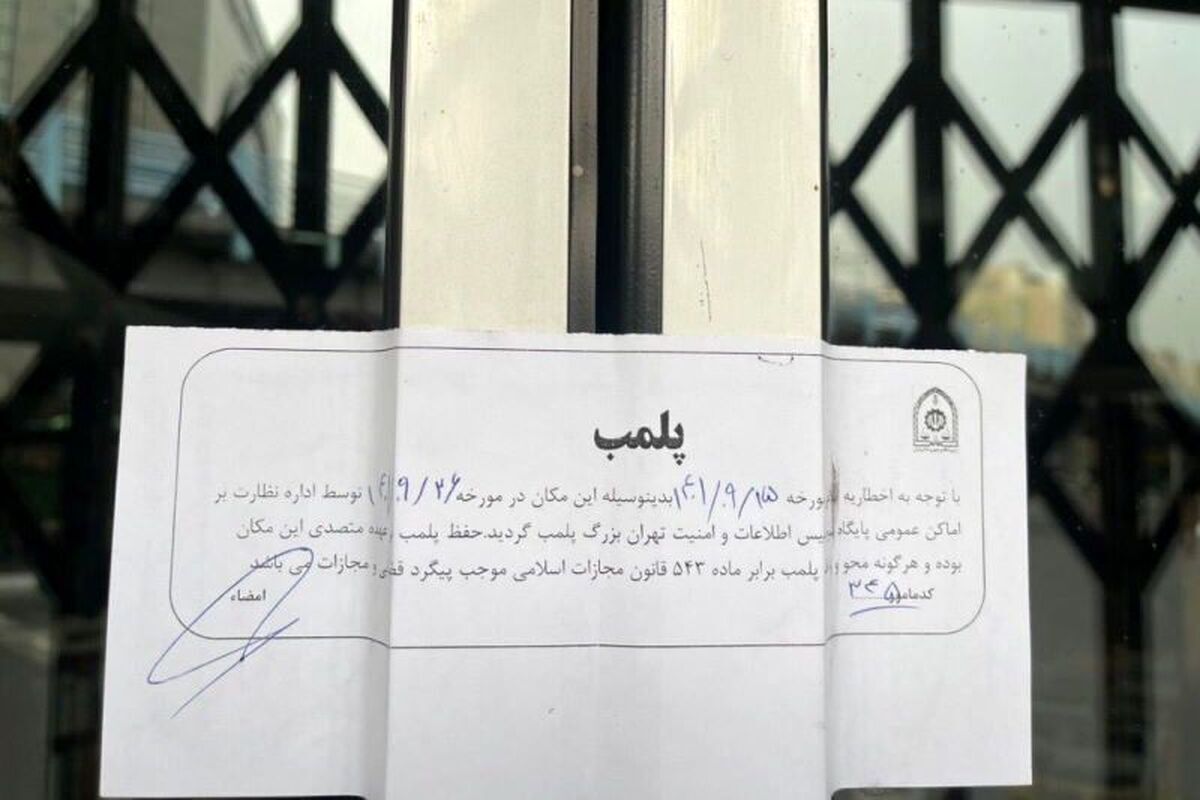 پلمب
با توجه به اخطاریه مورخه ۱۴۰۱/۰۹/۱۵ بدینوسیله این مکان در مورخه توسط اداره نظارت بر
اماکن عمومی پایگاه پلیس اطلاعات و امنیت تهران بزرگ پلمب گردید.حفظ پلمب بعهده متصدی این مکان
بوده و هرگونه محو و پلمب برابر ماده ۵۴۳ قانون مجازات اسلامی موجب پیگرد قضی و مجازات می باشد
کدمامور ۳۴۵ امضاء